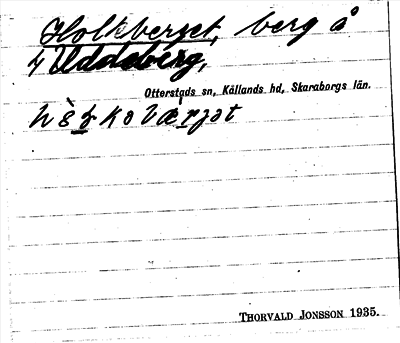 Holkberget, berg å
4 Uddeberg,
Otterstads sn, Kållands hd, Skaraborgs län.
THORVALD JONSSON 1935.